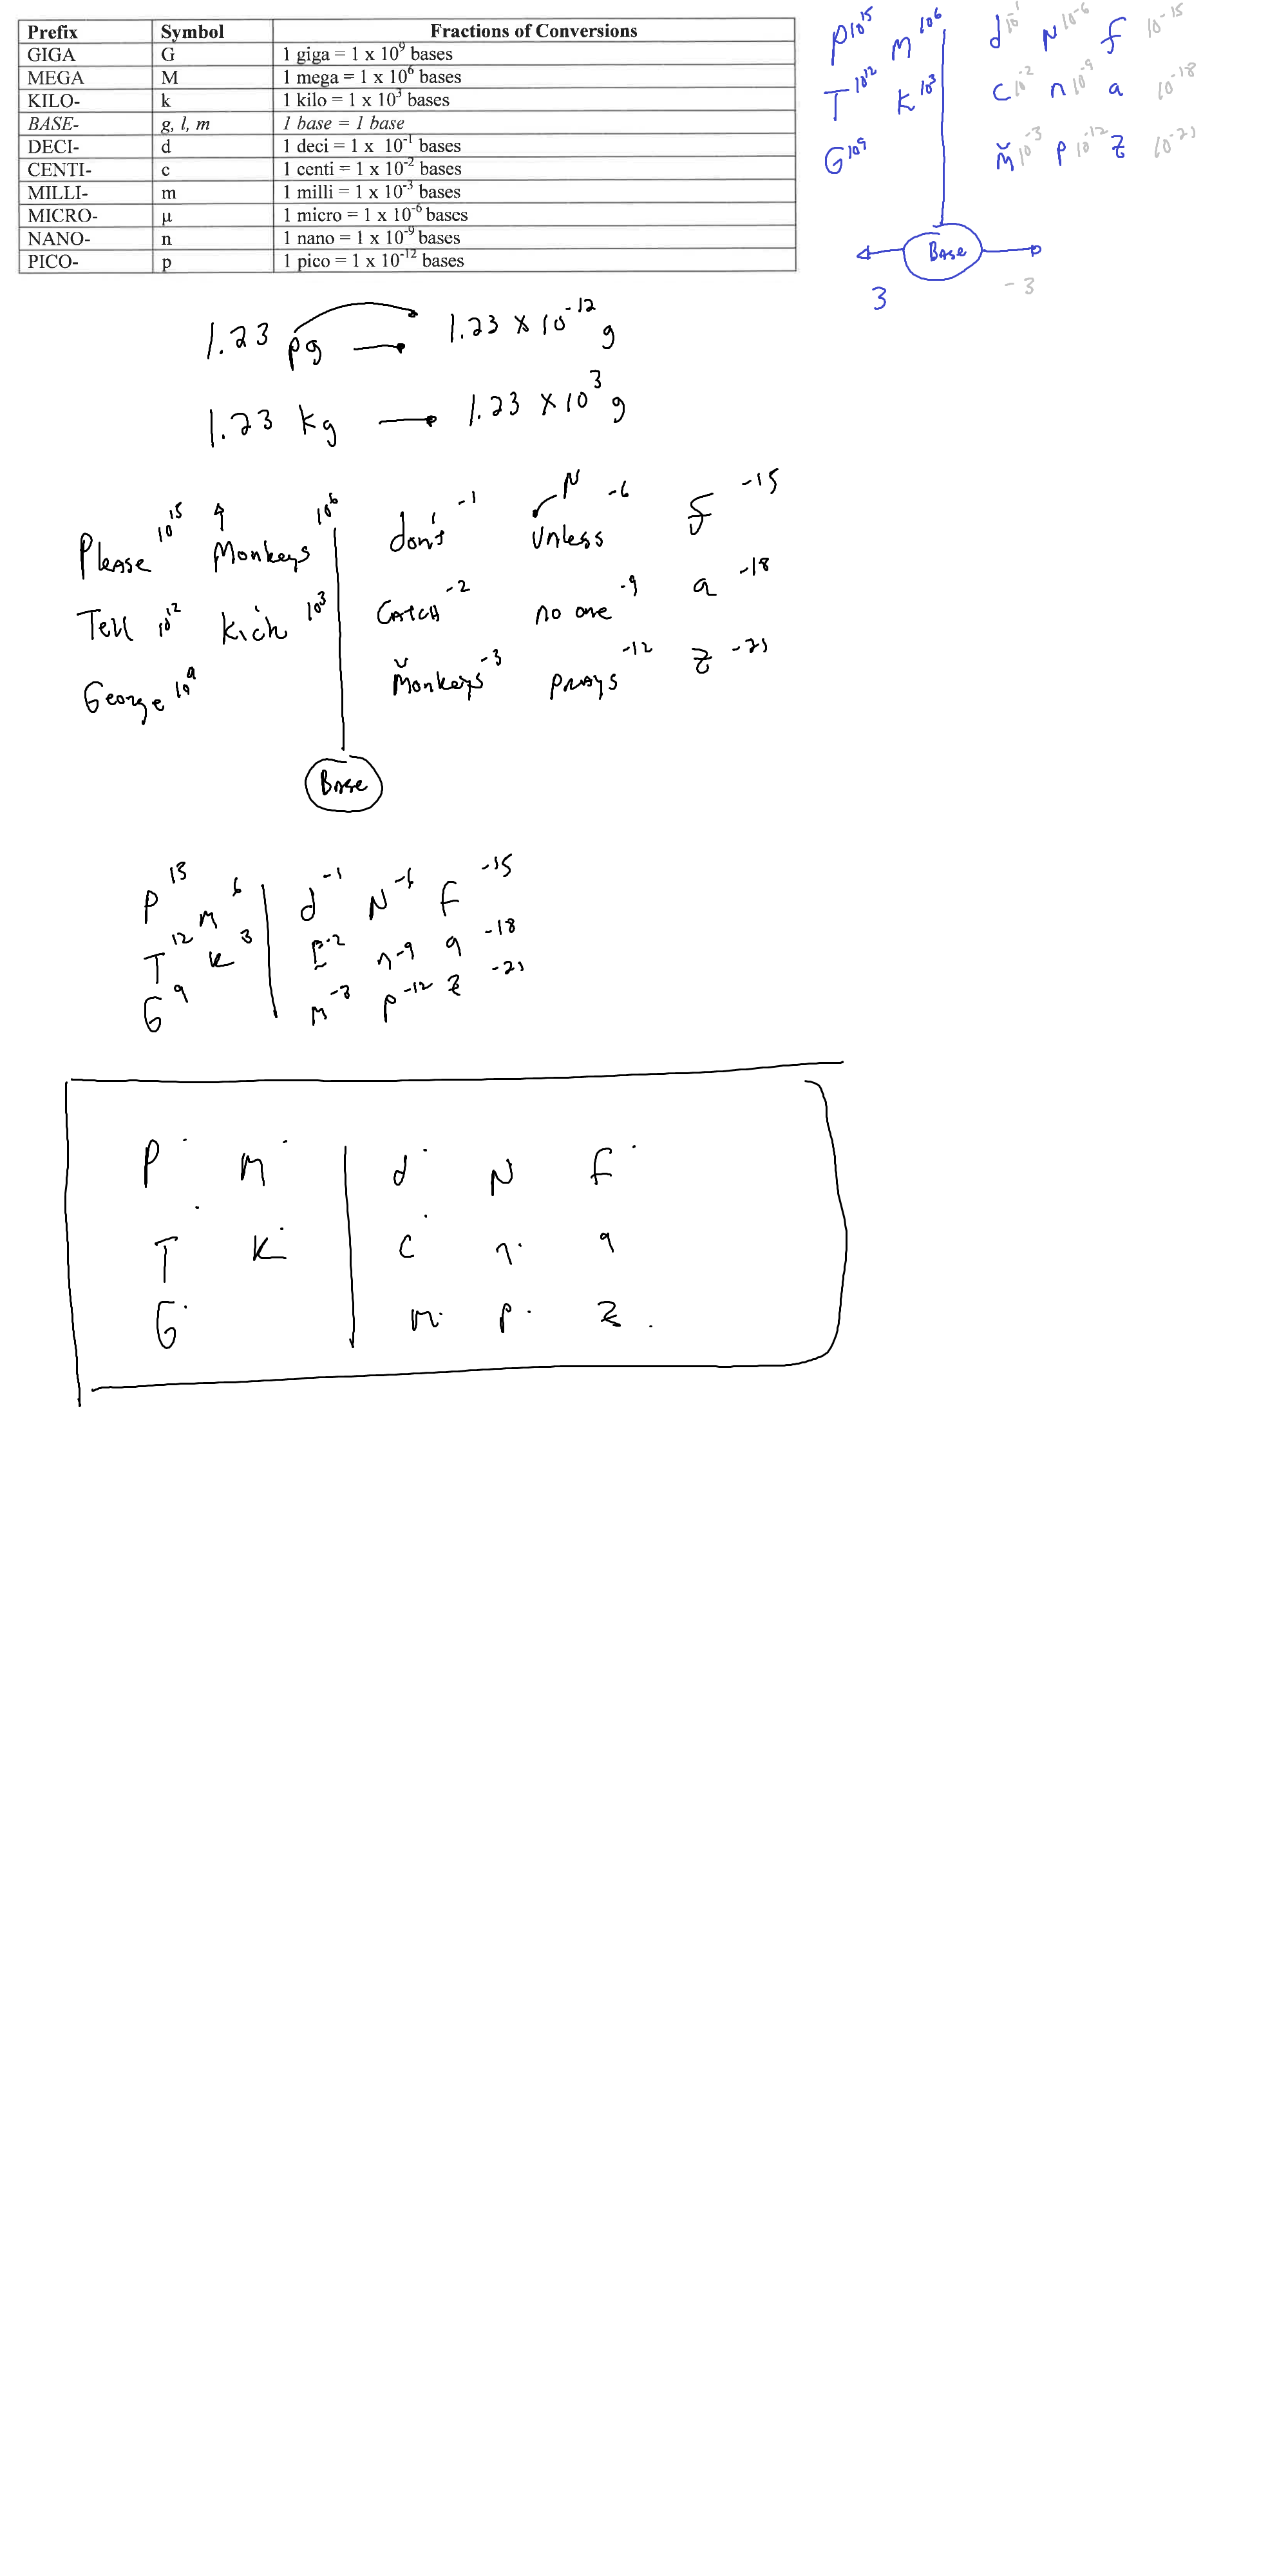 Prefix Symbol Fractions of Conversions
GIGA G 1 giga = 1 x 10⁹ bases
MEGA M 1 mega = 1 x 10⁶ bases
KILO- k 1 kilo = 1 x 10³ bases
BASE- g, l, m 1 base = 1 base
DECI- d 1 deci = 1 x 10⁻¹ bases
CENTI- c 1 centi = 1 x 10⁻² bases
MILLI- m 1 milli = 1 x 10⁻³ bases
MICRO- μ 1 micro = 1 x 10⁻⁶ bases
NANO- n 1 nano = 1 x 10⁻⁹ bases
PICO- p 1 pico = 1 x 10⁻¹² bases
P10¹⁵ M10⁶ d10⁻¹ μ10⁻⁶ f 10⁻¹⁵
T10¹² K10³ c10⁻² n10⁻⁹ a 10⁻¹⁸
G10⁹ m̌10⁻³ p10⁻¹² z 10⁻²¹
Base
3 -3
1.23 pg → 1.23 × 10⁻¹² g
1.23 kg → 1.23 × 10³ g
μ
Please 10¹⁵ Monkeys 10⁶ don't⁻¹ Unless⁻⁶ f⁻¹⁵
Tell 10¹² Kick 10³ Catch⁻² no one⁻⁹ a⁻¹⁸
George 10⁹ m̌onkeys⁻³ prays⁻¹² z⁻²¹
Base
P¹⁵ M⁶ d⁻¹ μ⁻⁶ f⁻¹⁵
T¹² K³ c⁻² n⁻⁹ a⁻¹⁸
G⁹ m⁻³ p⁻¹² z⁻²¹
P M d μ f
T K c n a
G m p z